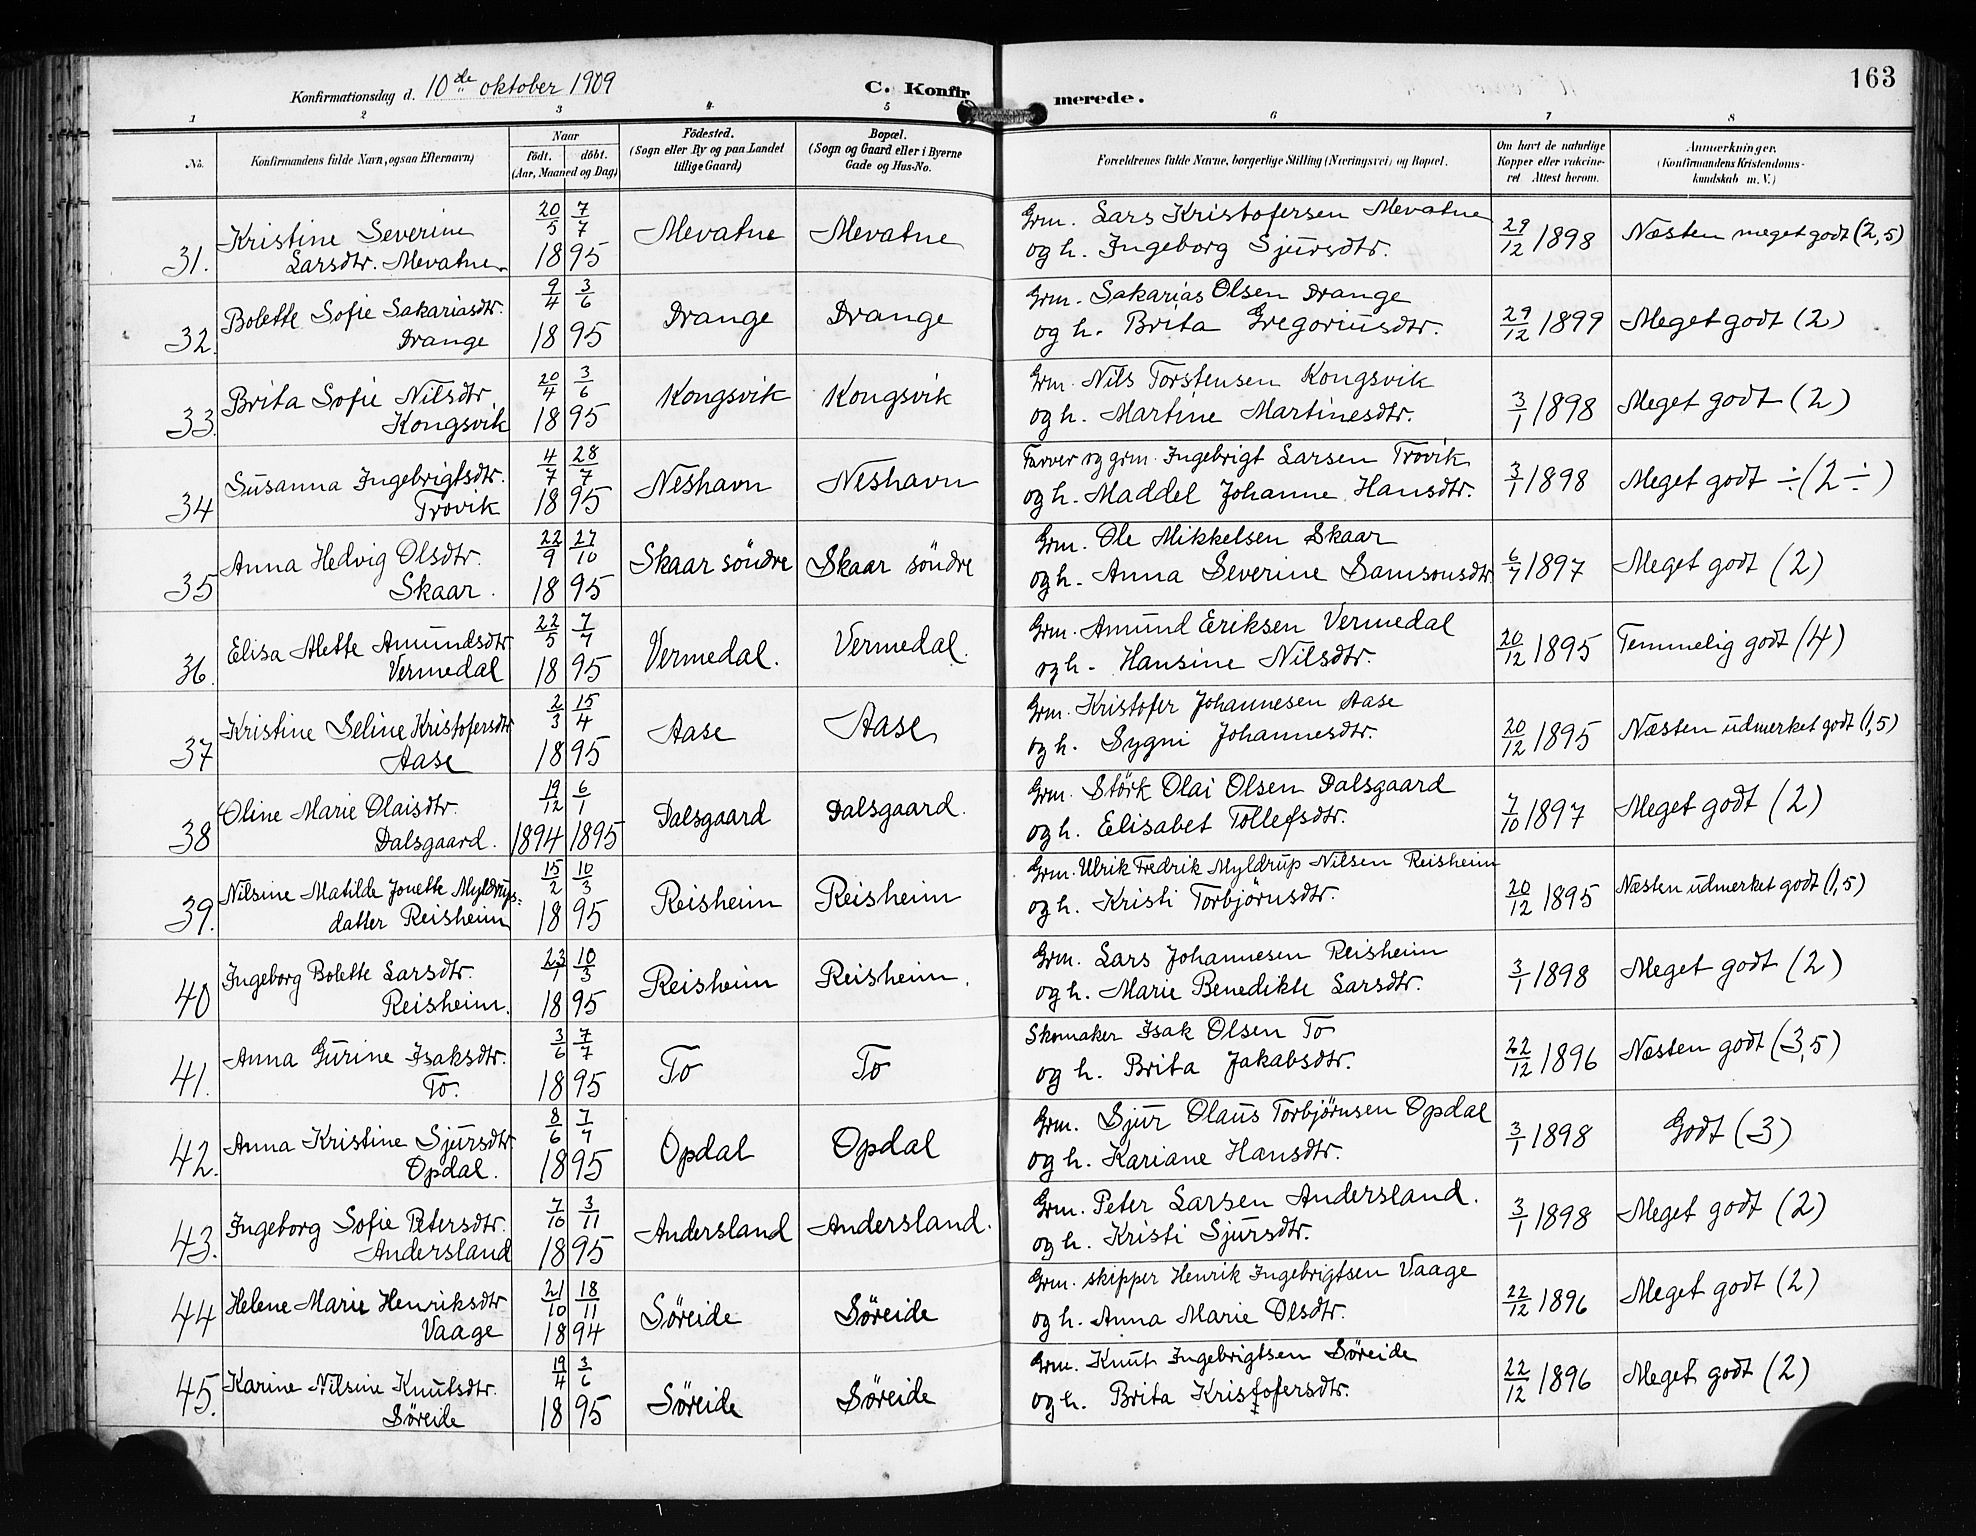 163
Konfirmationsdag d. 10de oktober 1909
C. Konfirmerede.
1 2 3 4 5 6 7 8
No. | Konfirmandens fulde Navn, (ogsaa Efternavn) | Naar født. døbt. (Aar, Maaned og Dag) | Födested. (Sogn eller By og paa Landet tillige Gaard) | Bopæl. (Sogn og Gaard eller i Byerne Gade og Hus-No. | Forældrenes fulde Navne, borgerlige Stilling (Næringsvei) og Bopæl. | Om havt de naturlige Kopper eller vakcineret Attest herom. | Anmærkninger, (Konfirmandens Kristendomskundskab m. V.)
31. Kristine Severine | 20/5 7/7 | Mevatne | Mevatne | Grm. Lars Kristofersen Mevatne | 29/12 1898 | Næsten meget godt (2,5)
Larsdtr. Mevatne. | 1895 | og h. Ingeborg Sjursdtr.
32. Bolette Sofie Sakariasdtr. | 9/4 3/6 | Drange | Drange | Grm. Sakarias Olsen Drange | 29/12 1899 | Meget godt (2)
Drange | 1895 | og h. Brita Gregoriusdtr.
33. Brita Sofie Nilsdtr | 20/4 3/6 | Kongsvik | Kongsvik | Grm. Nils Torstensen Kongsvik | 3/1 1898 | Meget godt (2)
Kongsvik | 1895 | og h. Martine Martinesdtr.
34 Susanna Ingebrigtsdtr. | 4/7 28/7 | Neshavn | Neshavn | Farver og grm. Ingebrigt Larsen Trovik | 3/1 1898 | Meget godt ÷ (2 ÷)
Trovik | 1895 | og h. Maddel Johanne Hansdtr.
35 Anna Hedvig Olsdtr. | 22/9 27/10 | Skaar söndre | Skaar söndre | Grm. Ole Mikkelsen Skaar | 6/7 1897 | Meget godt (2)
Skaar. | 1895 | og h. Anna Severine Samsonsdtr
36. Elisa Alette Amundsdtr | 22/5 7/7 | Vermedal. | Vermedal. | Grm. Amund Eriksen Vermedal | 20/12 1895 | Temmelig godt (4)
Vermedal | 1895 | og h. Hansine Nilsdtr.
37 Kristine Seline Kristofersdtr | 2/3 15/4 | Aase | Aase | Grm. Kristofer Johannesen Aase | 20/12 1895 | Næsten udmerket godt (1,5)
Aase | 1895 | og h. Sygni Johannesdtr.
38 Oline Marie Olaisdtr. | 19/12 6/1 | Dalsgaard | Dalsgaard. | Grm. Störk Olai Olsen Dalsgaard | 7/10 1897 | Meget godt (2)
Dalsgaard. | 1894 1895 | og h. Elisabet Tollefsdtr.
39. Nilsine Matilde Jonette Myldrups= | 15/2 10/3 | Reisheim | Reisheim | Grm. Ulrik Fredrik Myldrup Nilsen Reisheim | 20/12 1895 | Næsten udmerket godt (1,5)
datter Reisheim | 1895 | og h. Kristi Torbjörnsdtr.
40 Ingeborg Bolette Larsdtr. | 23/1 10/3 | Reisheim | Reisheim. | Grm. Lars Johannesen Reisheim | 3/1 1898 | Meget godt (2)
Reisheim. | 1895 | og h. Marie Benedikte Larsdtr.
41. Anna Gurine Isaksdtr. | 3/6 7/7 | To | To | Skomaker Isak Olsen To | 22/12 1896 | Næsten godt (3,5)
To. | 1895 | og h. Brita Jakabsdtr.
42. Anna Kristine Sjursdtr. | 8/6 7/7 | Opdal | Opdal | Grm. Sjur Olaus Torbjörnsen Opdal | 3/1 1898 | Godt (3)
Opdal. | 1895 | og h. Kariane Hansdtr.
43. Ingeborg Sofie Petersdtr. | 7/10 3/11 | Andersland | Andersland. | Grm. Peter Larsen Andersland. | 3/1 1898 | Meget godt (2)
Andersland | 1895 | og h. Kristi Sjursdtr.
44 Helene Marie Henriksdtr | 21/10 18/11 | Søreide | Søreide | Grm. skipper Henrik Ingebrigtsen Vaage | 22/12 1896 | Meget godt (2)
Vaage | 1894 | og h. Anna Marie Olsdtr.
45. Karine Nilsine Knutsdtr. | 19/4 3/6 | Søreide | Søreide | Grm. Knut Ingebrigtsen Søreide | 22/12 1896 | Meget godt (2)
Søreide | 1895 | og h. Brita Kristofersdtr.